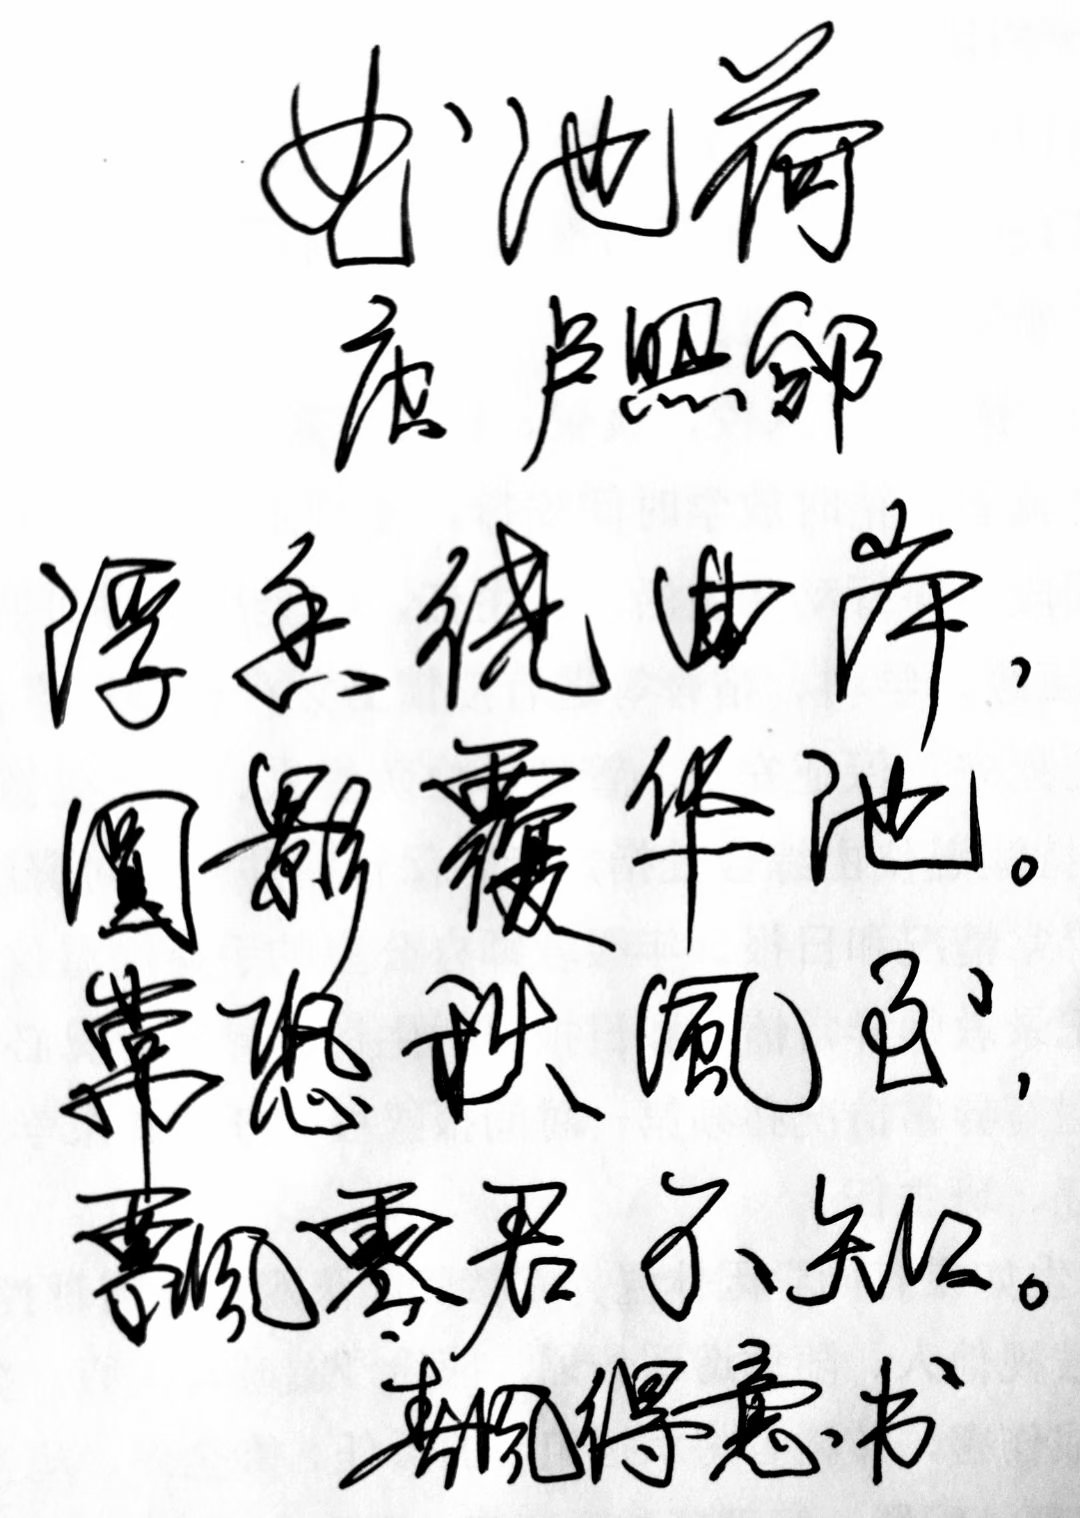 曲池荷
唐 卢照邻
浮香绕曲岸，
圆影覆华池。
常恐秋風早，
飘零君不知。
春风得意书